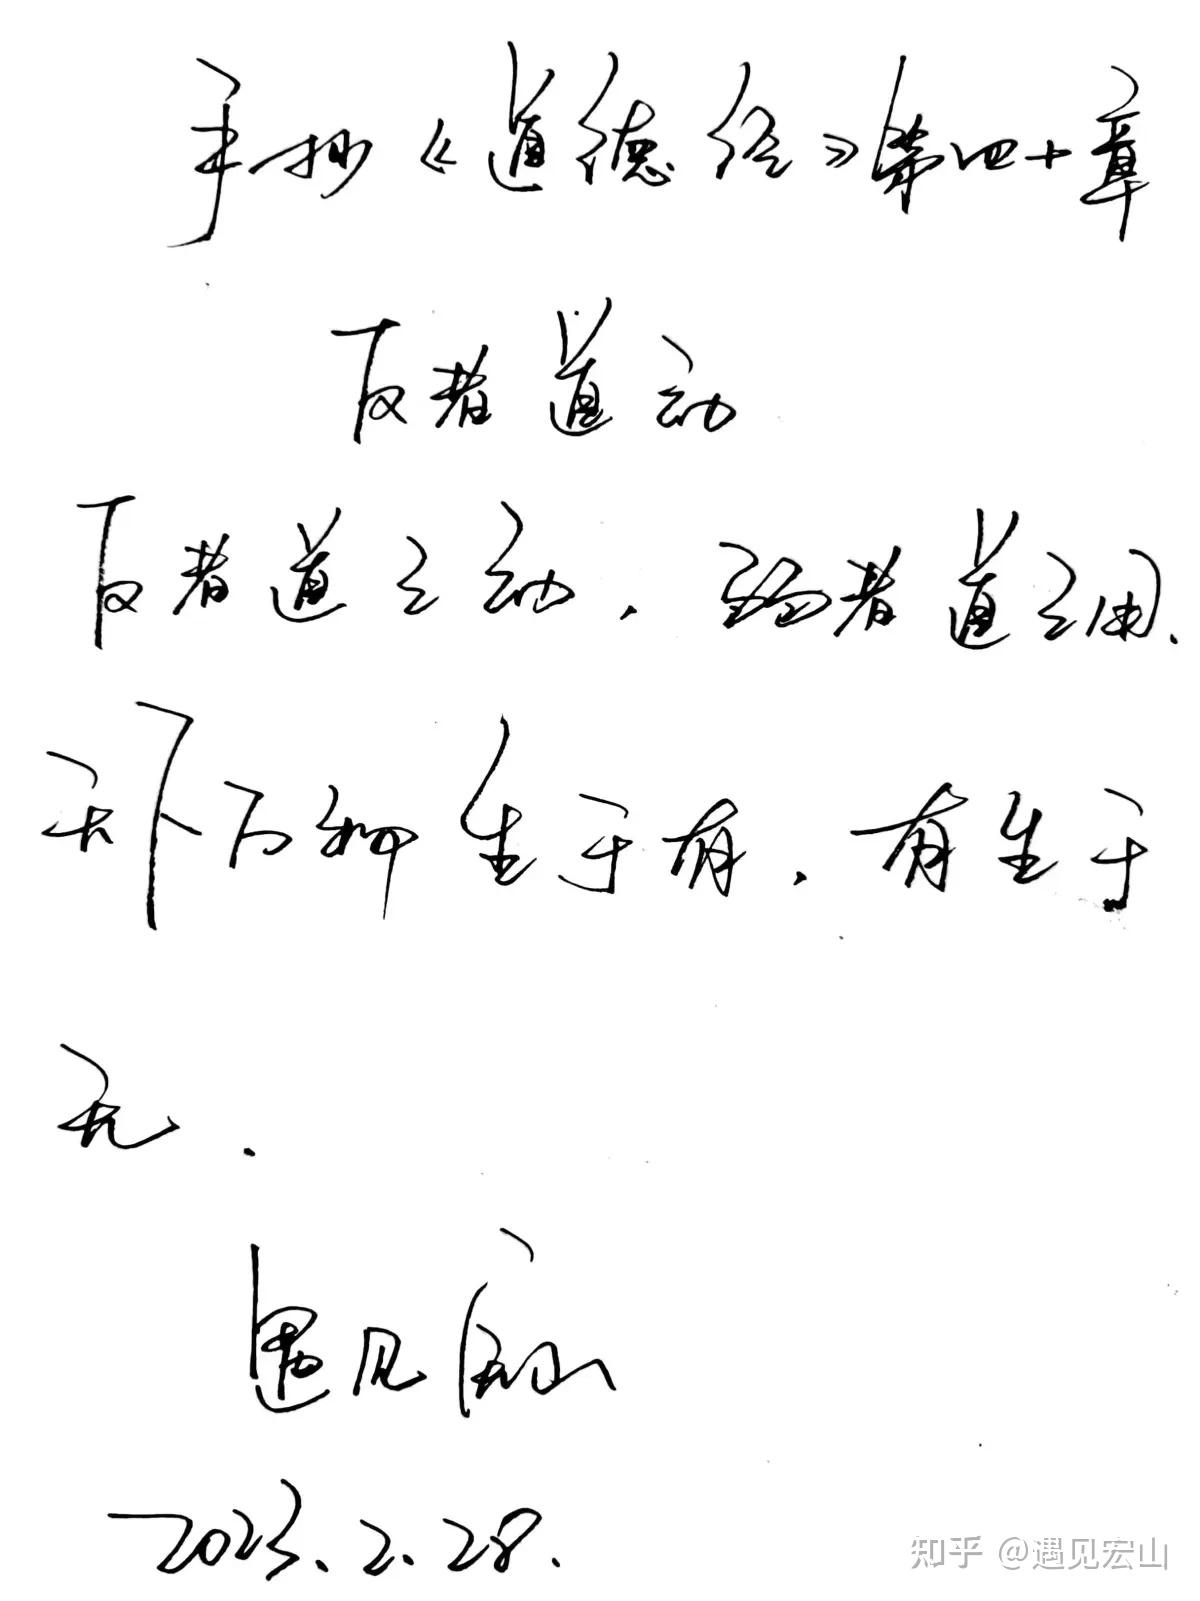 手抄《道德经》第四十章
反者道动
反者道之动，弱者道之用。
天下万物生于有，有生于
无。
遇见宏山
2023.2.28.
知乎 @遇见宏山